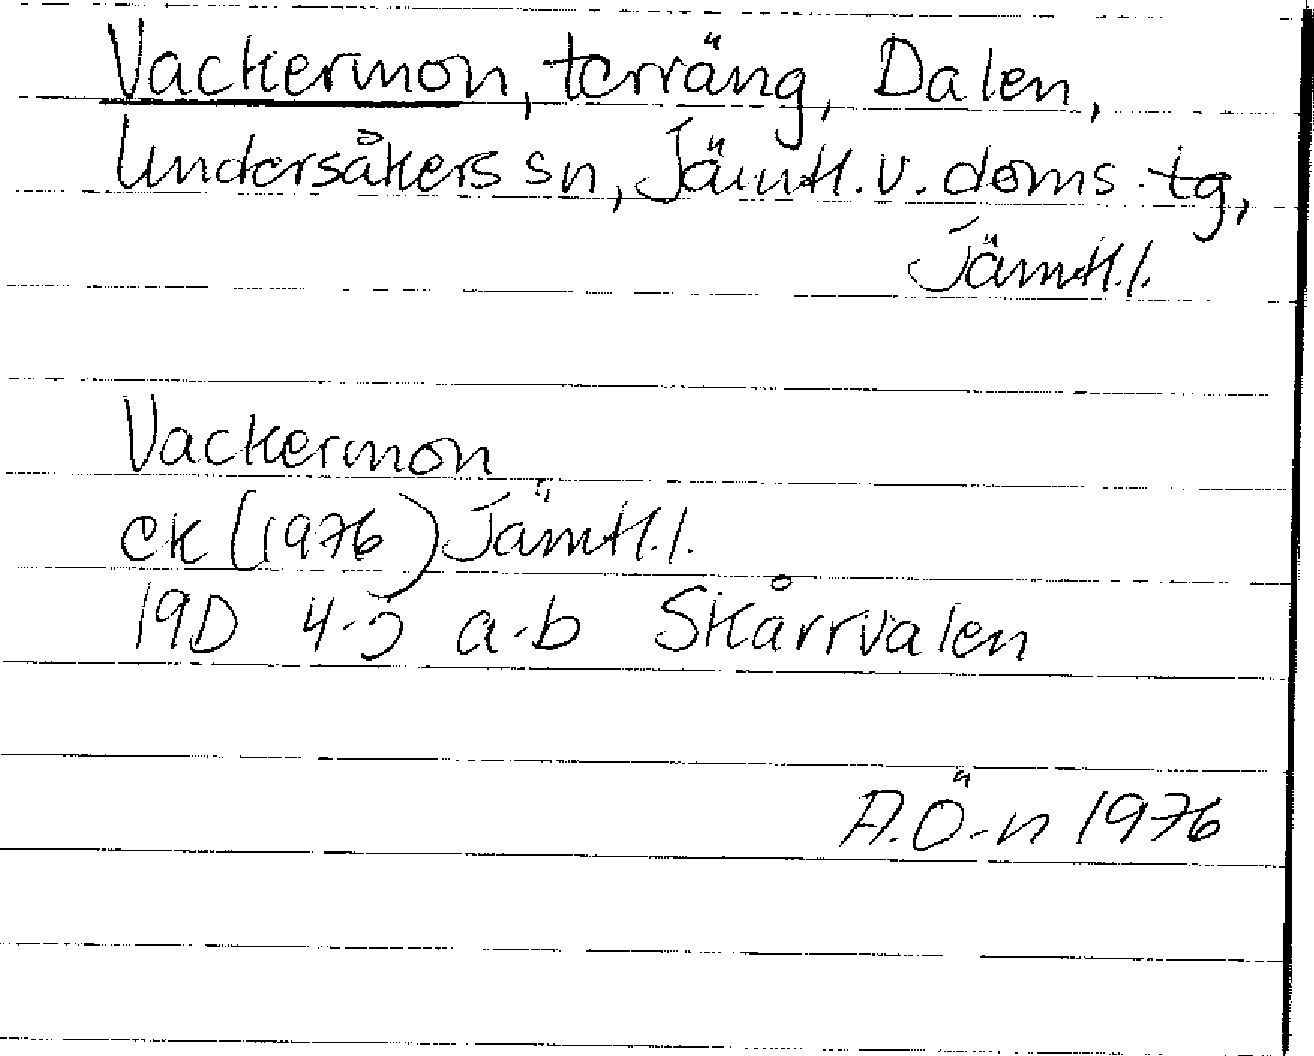 Vackermon, terräng, Dalen,
Undersåkers sn, Jämtl. v. doms. tg,
Jämtl. l.
Vackermon
ek (1976) Jämtl. l.
19D 4-5 a-b Skårrvalen
A.Ö-n 1976